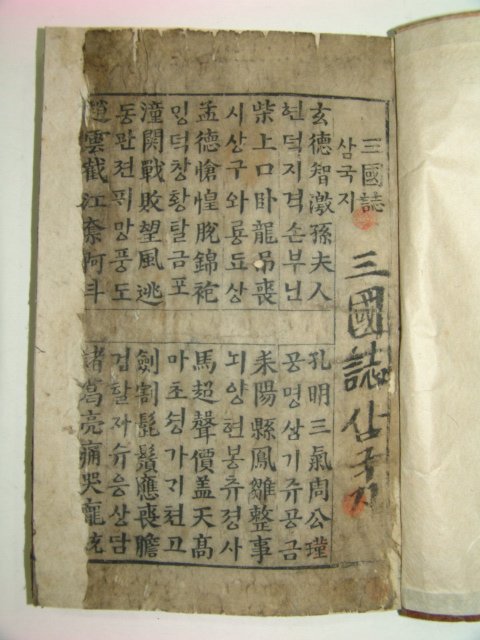 三國誌
삼국지
三國誌 삼국지
玄德智激孫夫人
현덕지격손부닌
柴上口臥龍吊喪
시상구와룡됴상
孟德愴惶脫錦袍
밍덕창황탈금포
潼関戰敗望風逃
동관젼픠망풍도
趙雲截江奪阿斗
孔明三氣周公瑾
공명삼기쥬공금
耒陽縣鳳雛整事
뇌양현봉츄졍사
馬超聲價盖天高
마초셩가기쳔고
劍割髭鬚應喪膽
검할자슈응상담
諸葛亮痛哭龐統